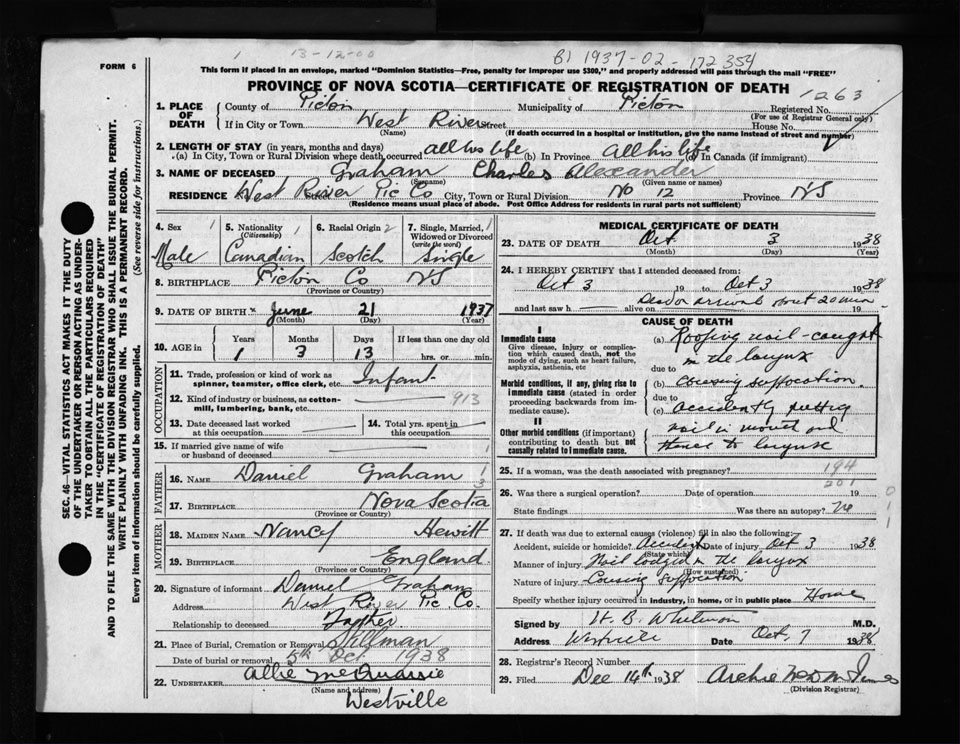 1 13-12-00 B) 1937-02-172354
FORM 6
This form if placed in an envelope, marked "Dominion Statistics—Free, penalty for improper use $300," and properly addressed will pass through the mail "FREE"
PROVINCE OF NOVA SCOTIA—CERTIFICATE OF REGISTRATION OF DEATH
1263
1. PLACE OF DEATH
County of Picton Municipality of Picton Registered No.
(For use of Registrar General only)
If in City or Town West River Street House No.
(Name) (If death occurred in a hospital or institution, give the name instead of street and number)
2. LENGTH OF STAY (in years, months and days)
(a) In City, Town or Rural Division where death occurred all his life (b) In Province All his life (c) In Canada (if immigrant)
3. NAME OF DECEASED Graham Charles Alexander
(Surname) (Given name or names)
RESIDENCE West River Pic Co City, Town or Rural Division No 12 Province NS
(Residence means usual place of abode. Post Office Address for residents in rural parts not sufficient)
4. Sex 1 5. Nationality 1 6. Racial Origin 2 7. Single, Married, 1
(Citizenship) Widowed or Divorced
(write the word)
Male Canadian Scotch Single
8. BIRTHPLACE Picton Co NS
(Province or Country)
9. DATE OF BIRTH June 21 1937
(Month) (Day) (Year)
10. AGE in Years Months Days If less than one day old
1 3 13 hrs. or min.
OCCUPATION
11. Trade, profession or kind of work as
spinner, teamster, office clerk, etc. Infant
12. Kind of industry or business, as cotton-
mill, lumbering, bank, etc. 913
13. Date deceased last worked
at this occupation
14. Total yrs. spent in
this occupation
15. If married give name of wife
or husband of deceased
FATHER
16. NAME Daniel Graham
17. BIRTHPLACE Nova Scotia
(Province or Country)
MOTHER
18. MAIDEN NAME Nancy Hewitt
19. BIRTHPLACE England
(Province or Country)
20. Signature of informant Daniel Graham
Address West River Pic Co.
Relationship to deceased Father
21. Place of Burial, Cremation or Removal
Date of burial or removal 5th Oct 1938
22. UNDERTAKER Allie McQuarrie
(Name and address)
Westville
MEDICAL CERTIFICATE OF DEATH
23. DATE OF DEATH Oct 3 1938
(Month) (Day) (Year)
24. I HEREBY CERTIFY that I attended deceased from:
Oct 3 19 to Oct 3 1938
Dead on arrival about 20 min
and last saw h alive on 19
CAUSE OF DEATH
I
Immediate cause
Give disease, injury or complica-
tion which caused death, not the
mode of dying, such as heart failure,
asphyxia, asthenia, etc
(a) Roofing nail caught
in the larynx
due to
Morbid conditions, if any, giving rise to
immediate cause (stated in order
proceeding backwards from im-
mediate cause).
(b) Causing suffocation.
due to
(c) Accidently putting
nail in mouth and
thence to larynx
II
Other morbid conditions (if important)
contributing to death but not
causally related to immediate cause.
25. If a woman, was the death associated with pregnancy? 194
201
26. Was there a surgical operation? Date of operation 19
State findings Was there an autopsy? No
011
27. If death was due to external causes (violence) fill in also the following:
Accident, suicide or homicide? Accident Date of injury Oct 3 1938
(State which)
Manner of injury Nail lodged in the larynx
(How sustained)
Nature of injury Causing suffocation
Specify whether injury occurred in industry, in home, or in public place Home
Signed by H. B. Whitman M.D.
Address Westville Date Oct 7 1938
28. Registrar's Record Number
29. Filed Dec 14th 1938 Archie
(Division Registrar)
SEC. 46—VITAL STATISTICS ACT MAKES IT THE DUTY
OF THE UNDERTAKER OR PERSON ACTING AS UNDER-
TAKER TO OBTAIN ALL THE PARTICULARS REQUIRED
IN THE "CERTIFICATE OF REGISTRATION OF DEATH"
AND TO FILE THE SAME WITH THE DIVISION REGISTRAR WHO SHALL ISSUE THE BURIAL PERMIT.
WRITE PLAINLY WITH UNFADING INK. THIS IS A PERMANENT RECORD.
Every item of information should be carefully supplied. (See reverse side for instructions.)